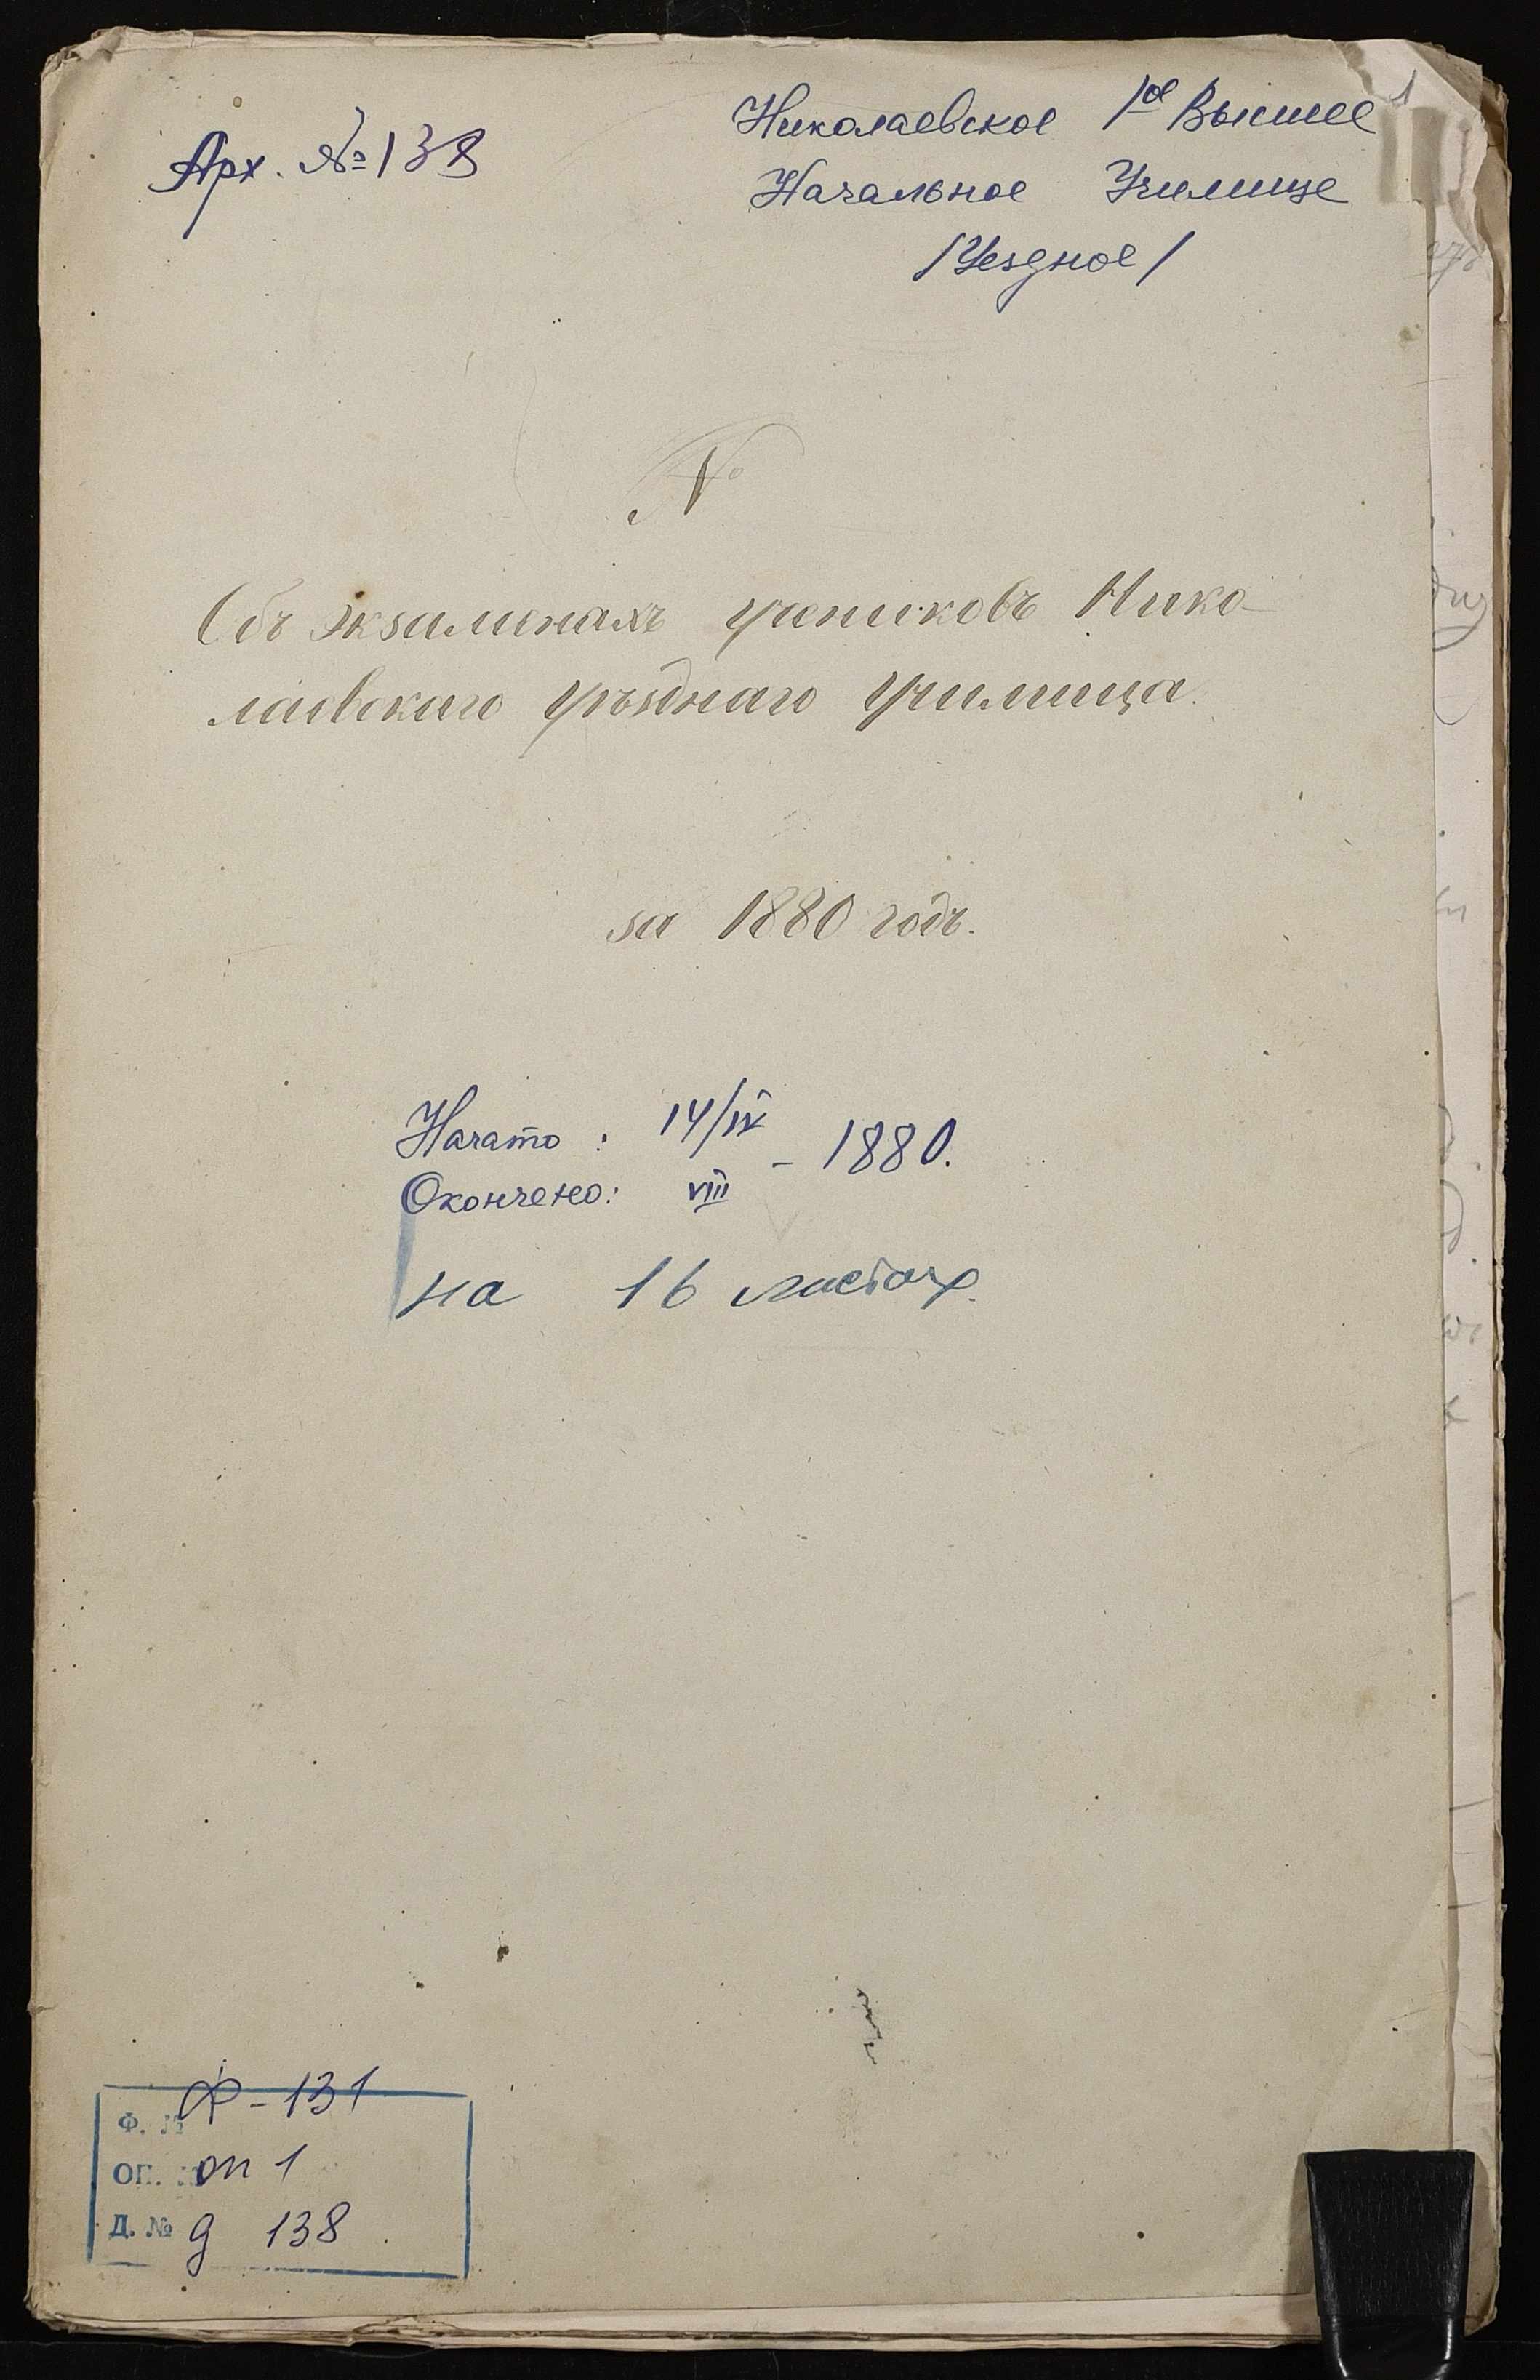 1
Арх. № 138
Николаевское 1ое Высшее
Начальное Училище
/Уездное/
№
Объ экзаменахъ учениковъ Нико-
лаевскаго уѣзднаго училища.
за 1880 годъ.
Начато: 14/IV - 1880.
Окончено: VIII
на 16 листах.
Ф. № Ф-131
ОП. № оп 1
Д. № д 138